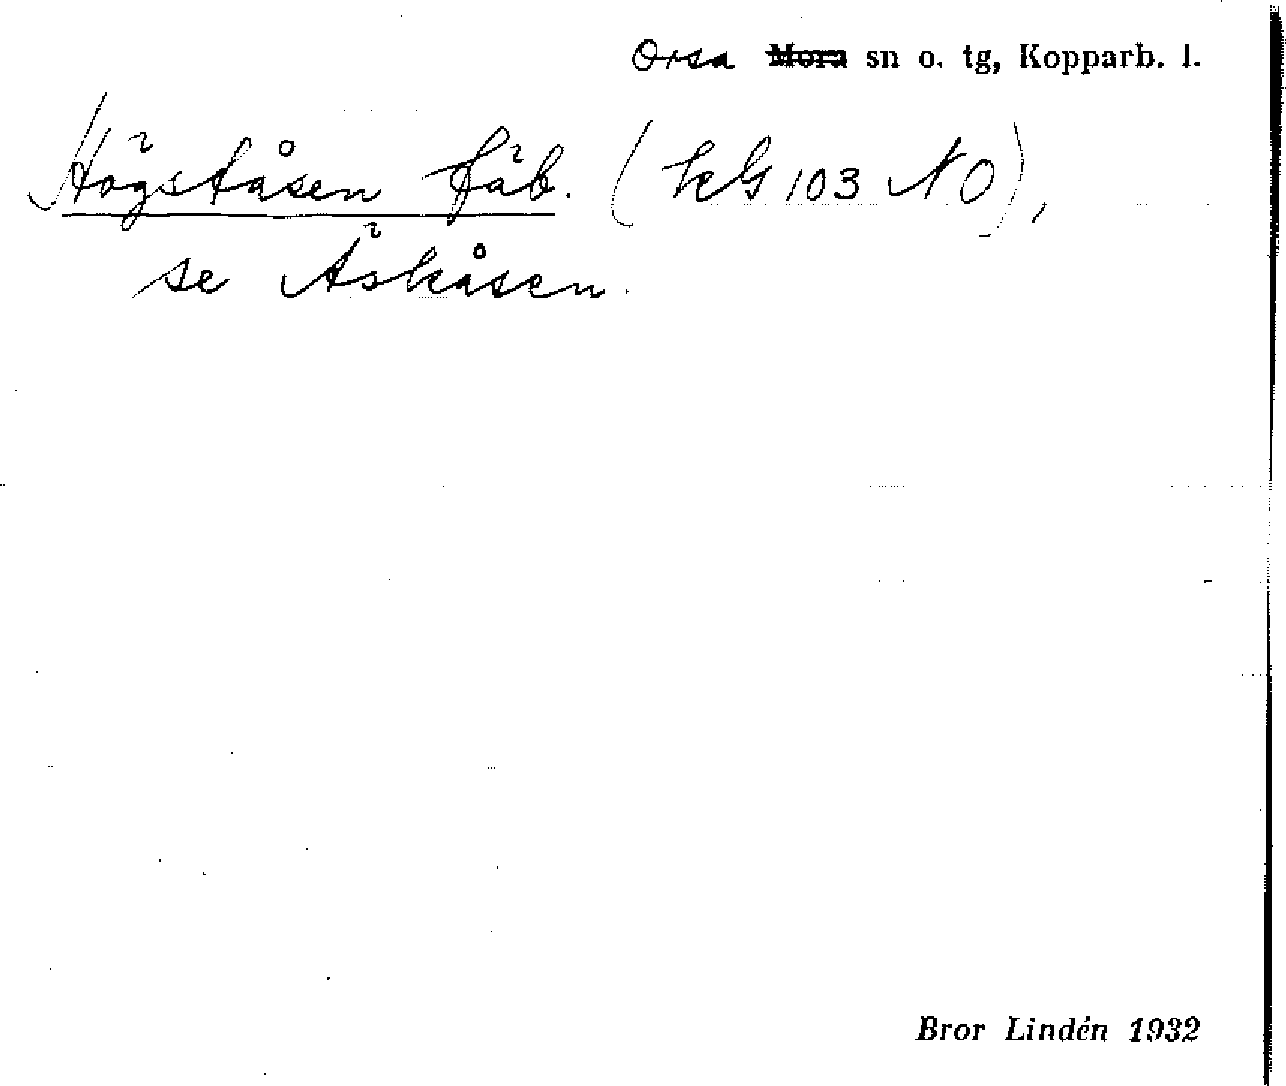 Orsa Mora sn o. tg, Kopparb. l.
Högståsen fäb. (kG 103 NO),
se Äskåsen.
Bror Lindén 1932